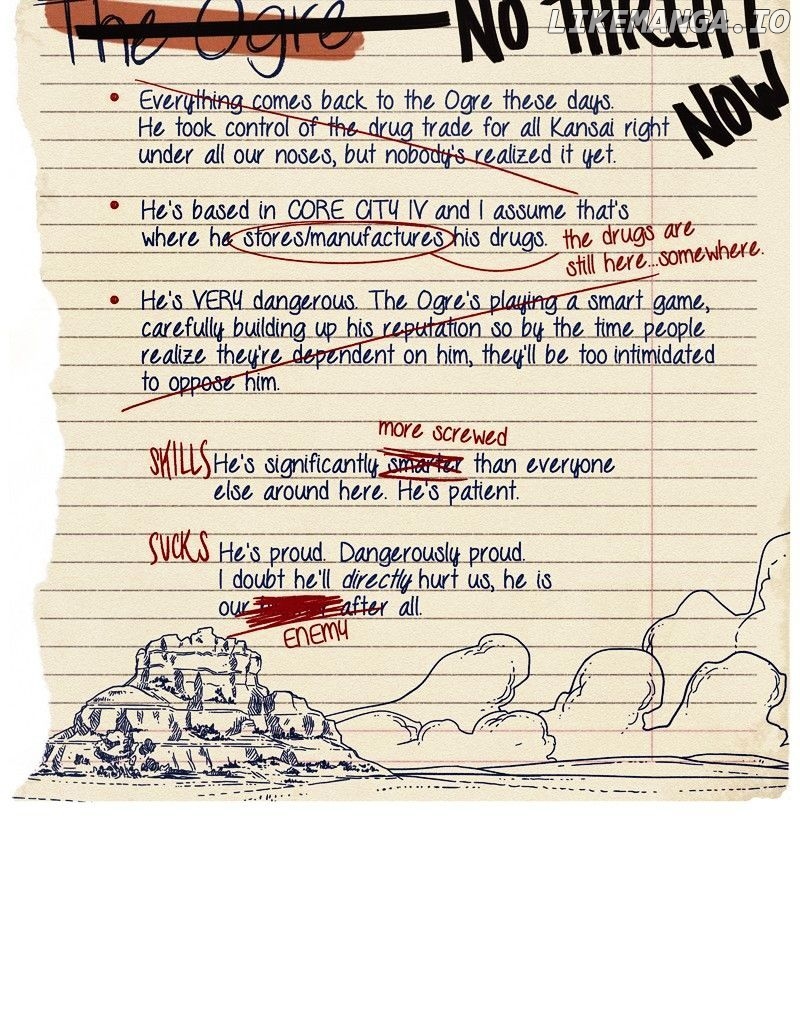 The Ogre
NO THREAT
NOW
LIKEMANGA.IO
• Everything comes back to the Ogre these days.
He took control of the drug trade for all Kansai right
under all our noses, but nobody's realized it yet.
• He's based in CORE CITY IV and I assume that's
where he stores/manufactures his drugs.
the drugs are
still here...somewhere.
• He's VERY dangerous. The Ogre's playing a smart game,
carefully building up his reputation so by the time people
realize they're dependent on him, they'll be too intimidated
to oppose him.
more screwed
SKILLS He's significantly smarter than everyone
else around here. He's patient.
SUCKS He's proud. Dangerously proud.
I doubt he'll directly hurt us, he is
our after all.
ENEMY